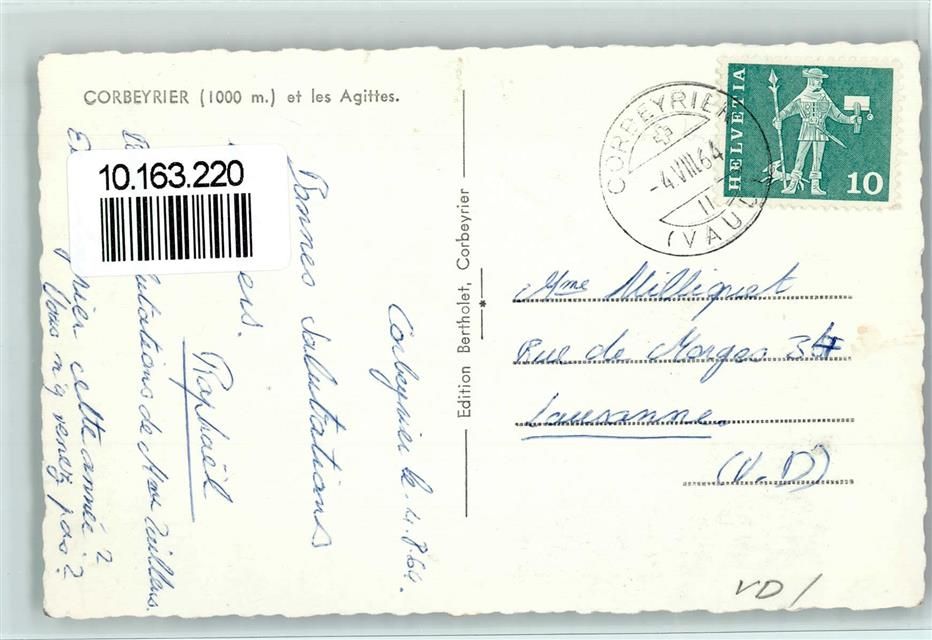 CORBEYRIER (1000 m.) et les Agittes.
10.163.220
Corbeyrier le 4.8.64.
Bonnes Salutations
Raphaël
utations de Mme
rier cette année ?
Vous n'y venez pas ?
Edition Bertholet, Corbeyrier
CORBEYRIER
-4.VIII.64
(VAUD)
HELVETIA
10
Mme Milliquet
Rue de Morges 34
Lausanne.
(V.D)
VD /